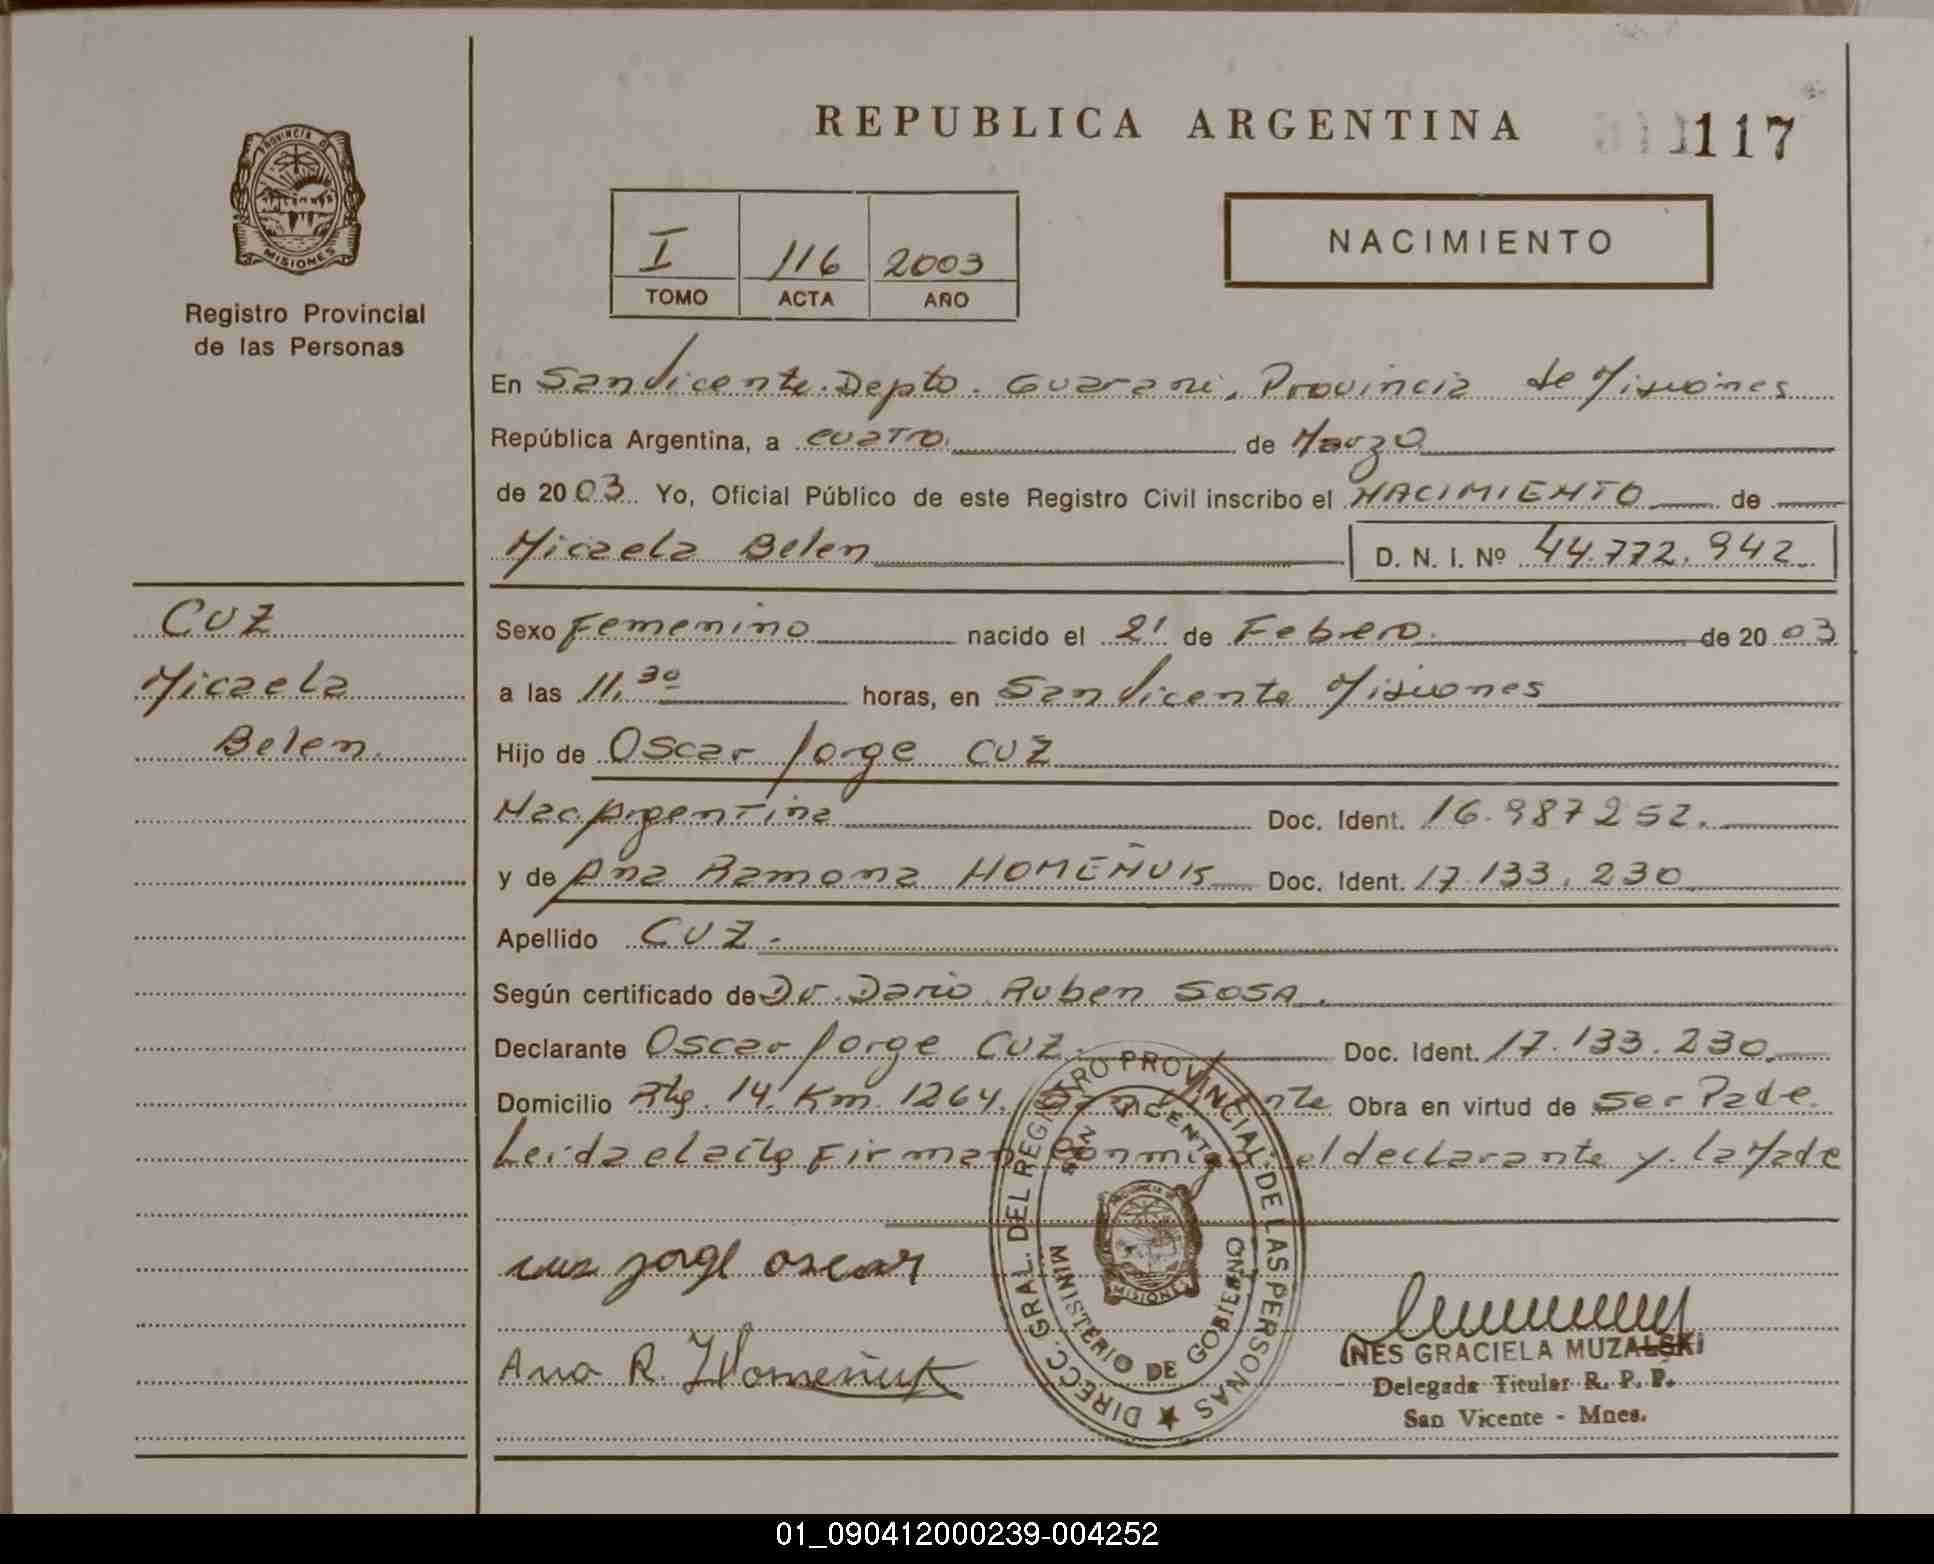 REPUBLICA ARGENTINA
117
PROVINCIA DE
MISIONES
Registro Provincial
de las Personas
I 116 2003
TOMO ACTA AÑO
NACIMIENTO
En San Vicente. Depto. Guarani, Provincia de Misiones
República Argentina, a cuatro. de Marzo
de 2003. Yo, Oficial Público de este Registro Civil inscribo el NACIMIENTO de
Micaela Belen D. N. I. Nº 44.772.942
CUZ
Micaela
Belen.
Sexo Femenino nacido el 21 de Febrero. de 2003
a las 11.30 horas, en San Vicente Misiones
Hijo de Oscar Jorge CUZ
Nac. Argentina Doc. Ident. 16.987252.
y de Ana Ramona HOMEÑUK Doc. Ident. 17.133.230
Apellido CUZ.
Según certificado de Dr. Dario Ruben SOSA.
Declarante Oscar Jorge CUZ. Doc. Ident. 17.133.230.
Domicilio Rta. 14. Km. 1264. San Vicente Obra en virtud de ser Pade.
Leida el acta Firman conmigo el declarante y la Made
DIRECC. GRAL. DEL REGISTRO PROVINCIAL DE LAS PERSONAS
SAN VICENTE
MISIONES
MINISTERIO DE GOBIERNO
cuz jorge oscar
Ana R. Homeñuk
INES GRACIELA MUZALSKI
Delegada Titular R. P. P.
San Vicente - Mnes.
01_090412000239-004252